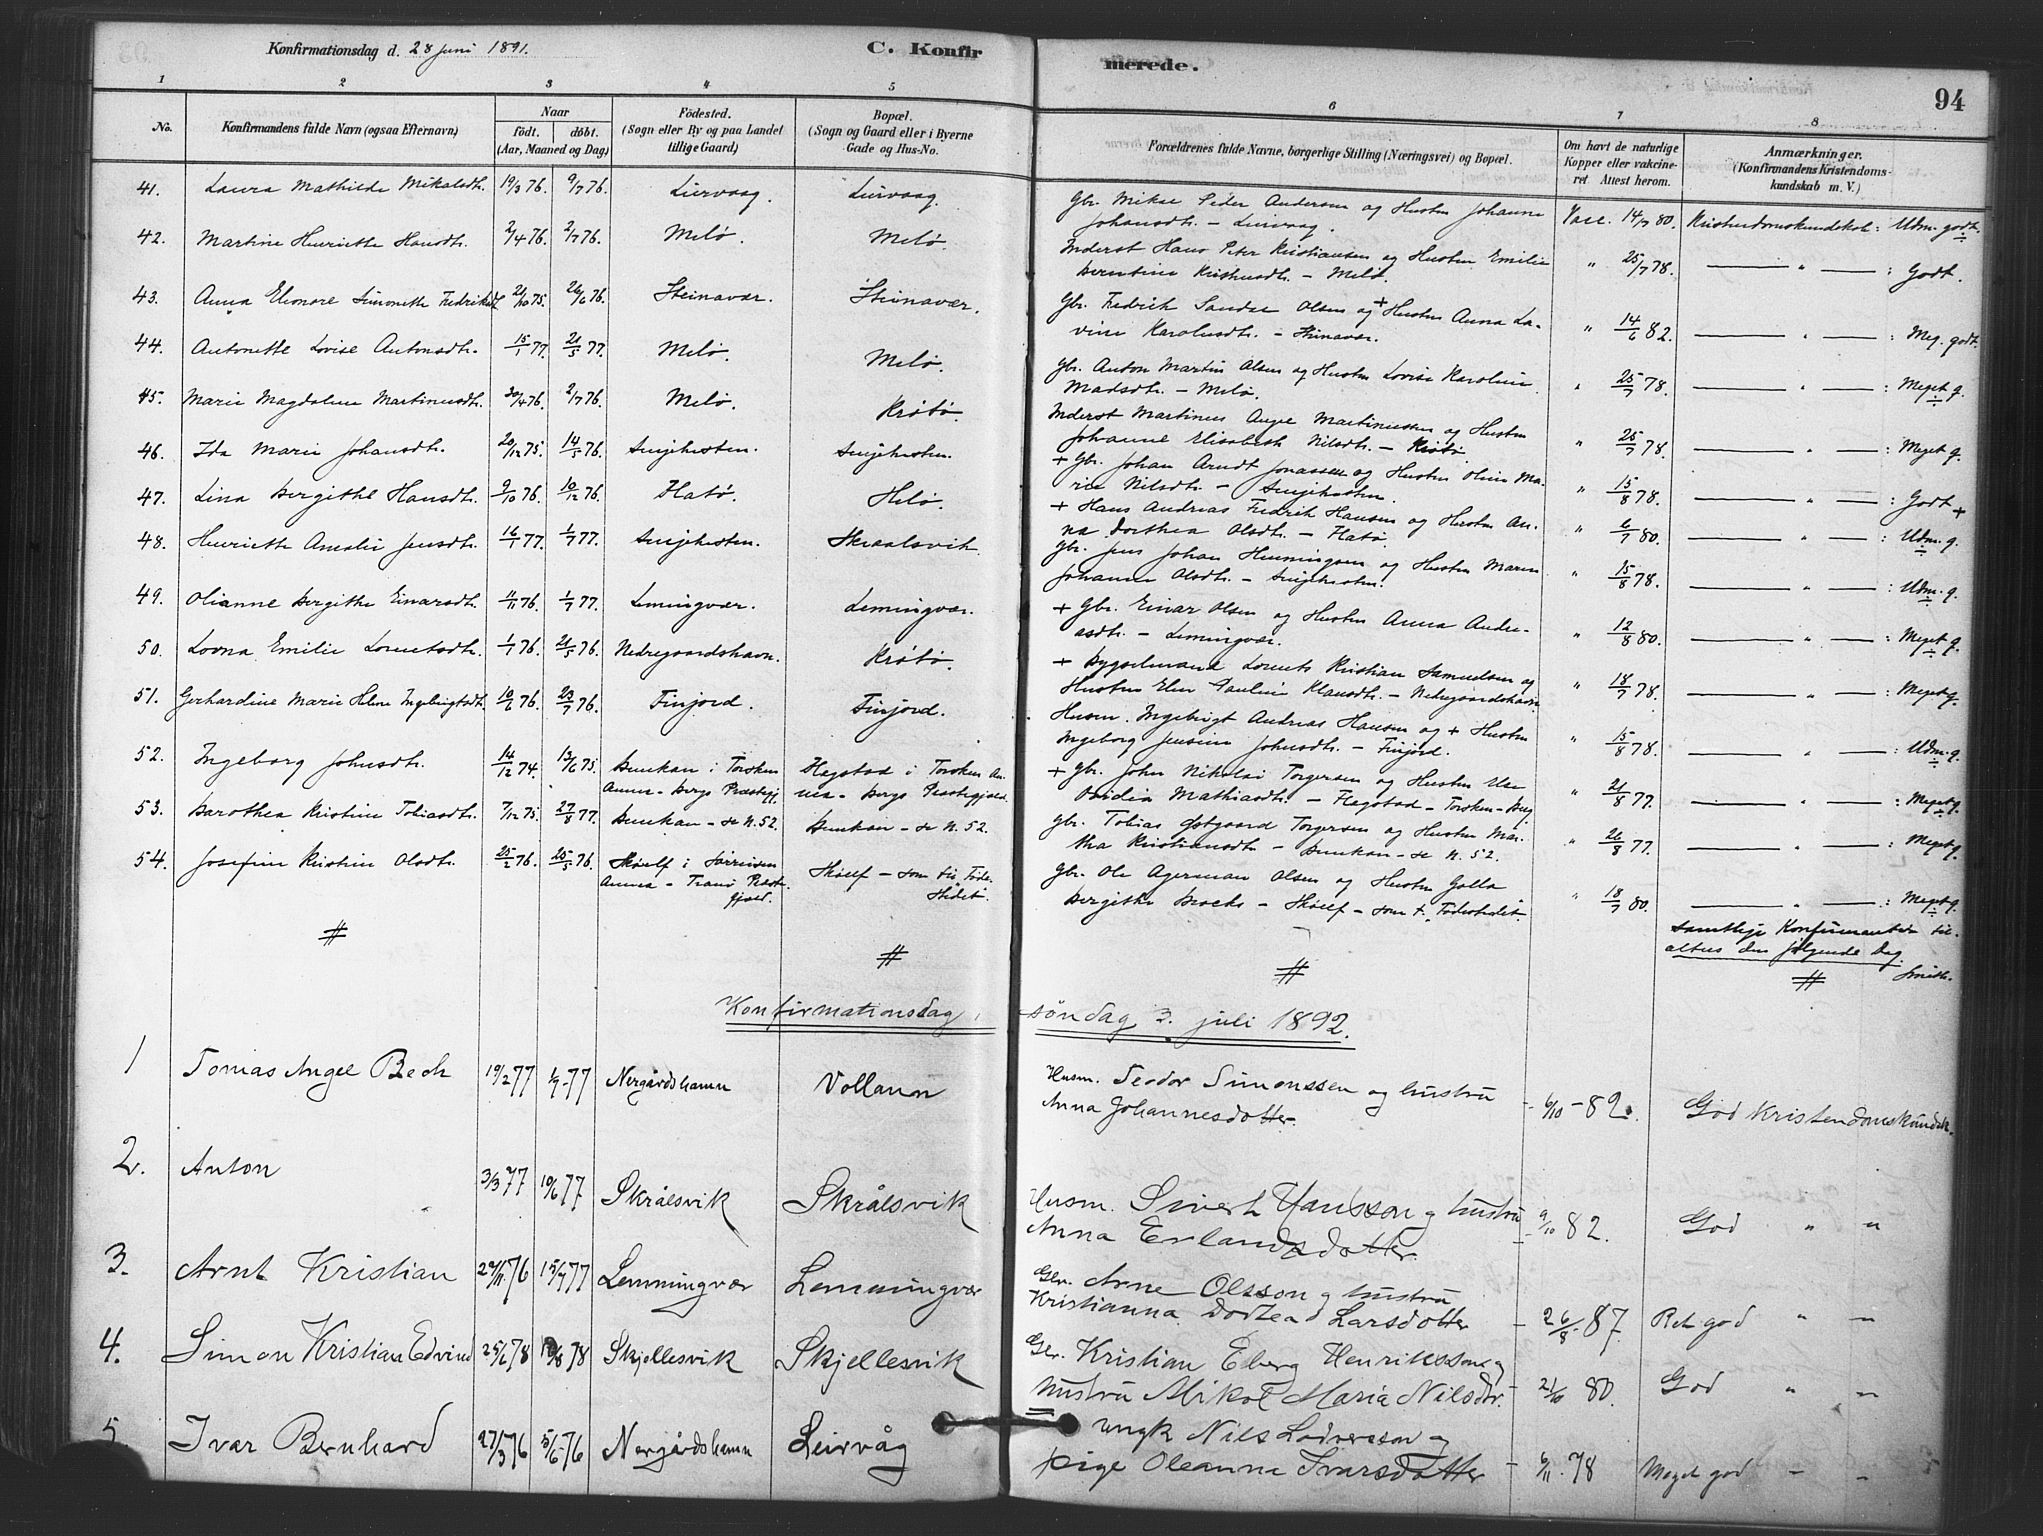 Konfirmationsdag d. 28 juni 1891.
C. Konfirmerede.
94
1 2 3 4 5 6 7 8
No.
Konfirmandens fulde Navn (ogsaa Efternavn)
Naar
födt. döbt.
(Aar, Maaned og Dag)
Födested.
(Sogn eller By og paa Landet
tillige Gaard)
Bopæl.
(Sogn og Gaard eller i Byerne
Gade og Hus-No.
Forældrenes fulde Navne, borgerlige Stilling (Næringsvei) og Bopæl.
Om havt de naturlige
Kopper eller vakcine-
ret Attest herom.
Anmærkninger.
(Konfirmandens Kristendoms-
kundskab m. V.)
41. Laura Mathilde Mikalsdtr. 19/3 76. 9/7 76. Liervaag. Liervaag. Gbr. Mikal Peder Andersen og Hustru Johanne
Johansdtr. – Liervaag. Vacc. 14/7 80. Kristendomskundskab: Udm. godt.
42. Martine Henriette Hansdtr. 2/4 76. 2/7 76. Melö. Melö. Inderst Hans Peter Kristiansen og Hustru Emilie
Berntine – Melö. " 25/7 78. " : Godt.
43. Anna Elenore Simonette Fredriksdt. 21/10 75. 26/6 76. Steinavær. Steinavær. Gbr. Fredrik Sander Olsen og + Hustru Anna La-
vine Karolusdtr. – Steinavær. " 14/6 82. " : Meg. godt.
44. Antonette Lovise Antonsdtr. 15/1 77. 21/5 77. Melö. Melö. Gbr. Anton Martin Olsen og Hustru Lovise Karoline
Madsdtr. – Melö. " 25/7 78. " : Meget g.
45. Marie Magdalene Martinusdtr. 30/4 76. 2/7 76. Melö. Krötö. Inderst Martinus Angel Martinussen og Hustru
Johanne Elisabeth Nilsdtr. – Krötö. " 25/7 78. " : Meget g.
46. Ida Marie Johansdtr. 20/12 75. 14/5 76. Senjehesten. Senjehesten. + Gbr. Johan Arndt Jonassen og Hustru Oline Ma-
rie Nilsdtr. – Senjehesten. " 15/8 78. " : Godt +
47. Lina Bergithe Hansdtr. 9/10 76. 10/12 76. Flatö. Melö. + Hans Andreas Fredrik Hansen og Hustru An-
na Dorthea Olsdtr. – Flatö. " 6/7 80. " : Udm. g.
48. Henriette Amalie Jensdtr. 16/1 77. 1/7 77. Senjehesten. Skraalsvik. Gbr. Jens Johan Henningsen og Hustru Maren
Johanna Olsdtr. – Senjehesten. " 15/8 78. " : Udm. g.
49. Olianne Bergithe Einarsdtr. 11/11 76. 1/7 77. Lemingvær. Lemingvær. + Gbr. Einar Olsen og Hustru Anna Andre-
asdtr. – Lemingvær. " 12/8 80. " : Meget g.
50. Lovna Emilie Lorentsdtr. 1/1 76. 21/5 76. Nedregaardshavn. Krötö. + Bygselmand Lorents Kristian Samuelsen og
Hustru Elen Pauline Klausdtr. – Nedregaardshavn " 18/7 78. " : Meget g.
51. Gerhardine Marie Helene Ingebrigtsdt. 10/6 76. 23/7 76. Finjord. Finjord. Husm. Ingebrigt Andreas Hansen og + Hustru
Ingeborg Jensine Johnsdtr. – Finjord. " 15/8 78. " : Udm. g.
52. Ingeborg Johnsdtr. 14/12 74. 13/6 75. Bunkan i Torsken
Annex – Bergs Præstegj. Flagstad i Torsken An-
nex – Bergs Præstegjæld. + Gbr. John Nikolai Torgersen og Hustru Else
Ovidia Mathiasdtr. – Flagstad – Torsken – Berg " 21/8 77. " : Meget g.
53. Dorothea Kristine Tobiasdtr. 7/12 75. 27/8 77. Bunkan – se N. 52. Bunkan – se N. 52. Gbr. Tobias Östgaard Torgersen og Hustru Mar-
tha Kristiansdtr. – Bunkan – se N. 52. " 26/8 77. " : Meget g.
54. Josefine Kristine Olsdtr. 25/2 76. 25/5 76. Sköelf i Sörreisen
Annex – Tranö Præste-
gjæld. Sköelf – som til Föde-
stedet. Gbr. Ole Agerman Olsen og Hustru Golla
Bergithe – Sköelf – som t. Födestedet. " 18/7 80. " : Meget g.
Samtlige Konfirmanter til
alters den fölgende Dag.
Smith.
Konfirmationsdag, söndag 3. juli 1892.
1 Tomas Angel Bech 19/2 77 1/7-77 Nergårdshamn Vollann Husm. Teodor Simonssen og hustru
Anna Johannesdotter – 6/10-82. God Kristendomskundsk.
2. Anton 3/3 77 10/6 77 Skrålsvik Skrålsvik Husm. Sivert Hansson g hustru
Anna Erlandsdotter. – 9/10 82. God " "
3. Arnt Kristian 29/11 76 15/7 77 Lemmingvær Lemmingvær Gbr. Arne Olsson g hustru
Kristianna Dortea Larsdotter – 26/8-87. Ret god " "
4. Simon Kristian Edvind 25/6 78 18/8 78 Skjellesvik Skjellesvik Gbr. Kristian Eberg Henriksson g
hustru Mikol Maria Nilsdtr. – 21/10 80. God " "
5. Ivar Bernhard 27/3 76 5/6-76 Nergårdshamn Leirvåg ungk Nils Lodversson g
pige Oleanna Ivarsdotter – 6/11. 78 Meget god " "